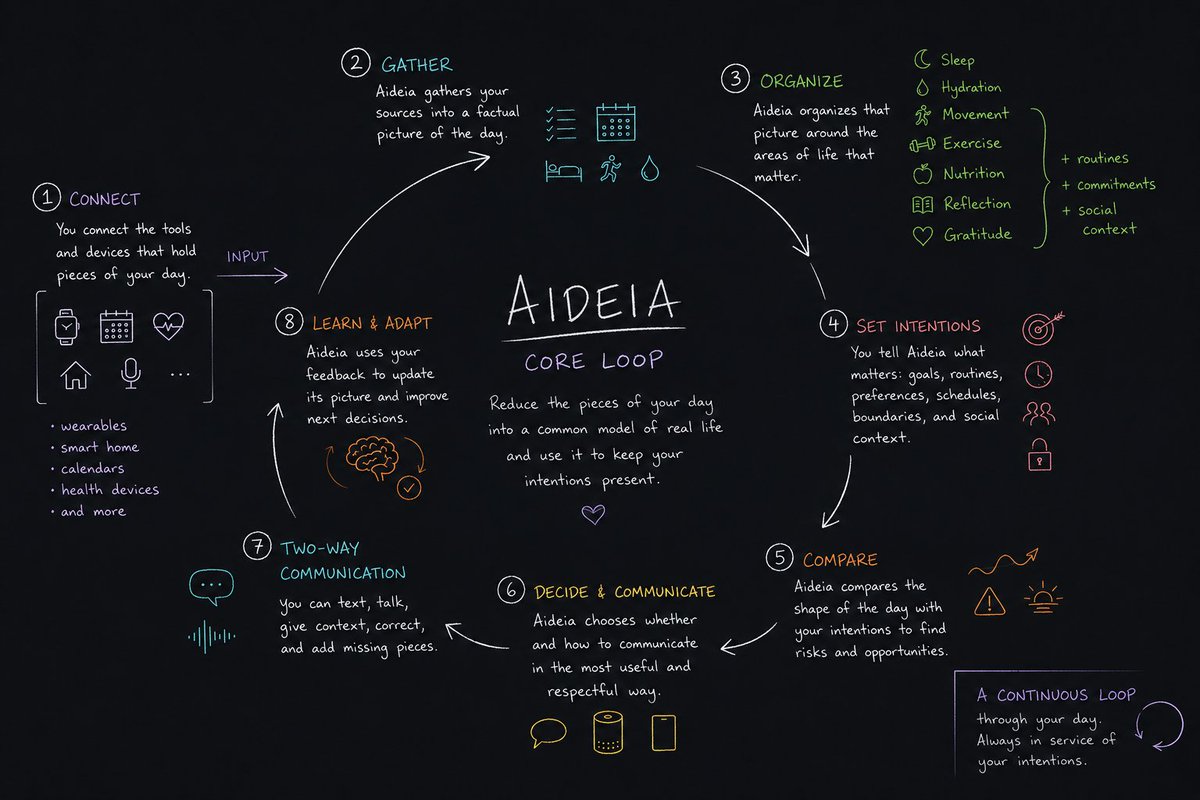 AIDEIA
CORE LOOP
Reduce the pieces of your day
into a common model of real life
and use it to keep your
intentions present.
1 CONNECT
You connect the tools
and devices that hold
pieces of your day.
INPUT
...
• wearables
• smart home
• calendars
• health devices
• and more
2 GATHER
Aideia gathers your
sources into a factual
picture of the day.
3 ORGANIZE
Aideia organizes that
picture around the
areas of life that
matter.
Sleep
Hydration
Movement
Exercise
Nutrition
Reflection
Gratitude
+ routines
+ commitments
+ social
context
4 SET INTENTIONS
You tell Aideia what
matters: goals, routines,
preferences, schedules,
boundaries, and social
context.
5 COMPARE
Aideia compares the
shape of the day with
your intentions to find
risks and opportunities.
6 DECIDE & COMMUNICATE
Aideia chooses whether
and how to communicate
in the most useful and
respectful way.
7 TWO-WAY
COMMUNICATION
You can text, talk,
give context, correct,
and add missing pieces.
8 LEARN & ADAPT
Aideia uses your
feedback to update
its picture and improve
next decisions.
A CONTINUOUS LOOP
through your day.
Always in service of
your intentions.